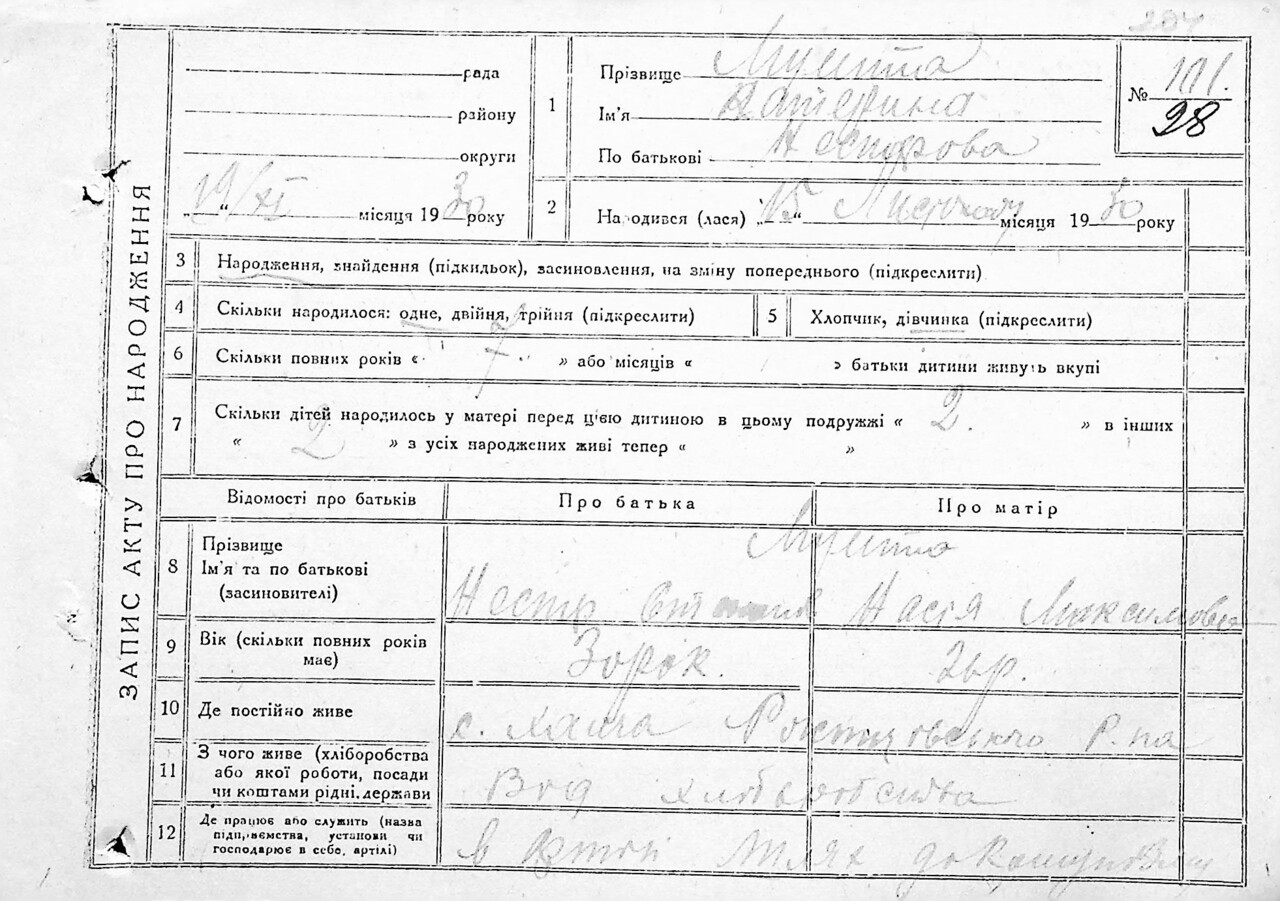 204
рада
району
округи
„19/XI“ місяця 1930 року
1
Прізвище
Ім'я Катерина
По батькові Несторова
№ 101.
28
2
Народився (лася) „15“ Листопаду місяця 1930 року
ЗАПИС АКТУ ПРО НАРОДЖЕННЯ
3
Народження, знайдення (підкидьок), засиновлення, на зміну попереднього (підкреслити)
4
Скільки народилося: одне, двійня, трійня (підкреслити)
5
Хлопчик, дівчинка (підкреслити)
6
Скільки повних років « 7 » або місяців « » батьки дитини живуть вкупі
7
Скільки дітей народилось у матері перед цією дитиною в цьому подружжі « 2. » в інших
« 2 » з усіх народжених живі тепер « »
Відомості про батьків
Про батька
Про матір
8
Прізвище
Ім'я та по батькові
(засиновителі)
Нестір
Настя Максимовна
9
Вік (скільки повних років
має)
30 рок.
26 р.
10
Де постійно живе
с. Р-на
11
З чого живе (хліборобства
або якої роботи, посади
чи коштами рідні, держави
Від хліборобства
12
Де працює або служить (назва
підприємства, установи чи
господарює в себе, артілі)
в Шлях до Комунізму